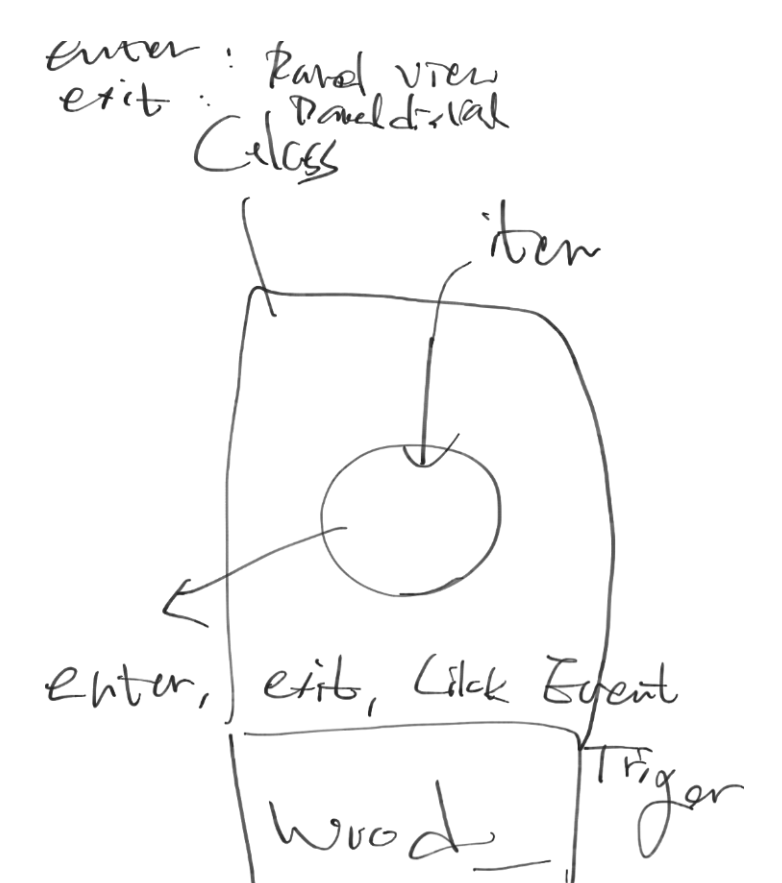 enter : Panel view
exit : Panel
item
enter, exit, Click Event
Triger
Wood